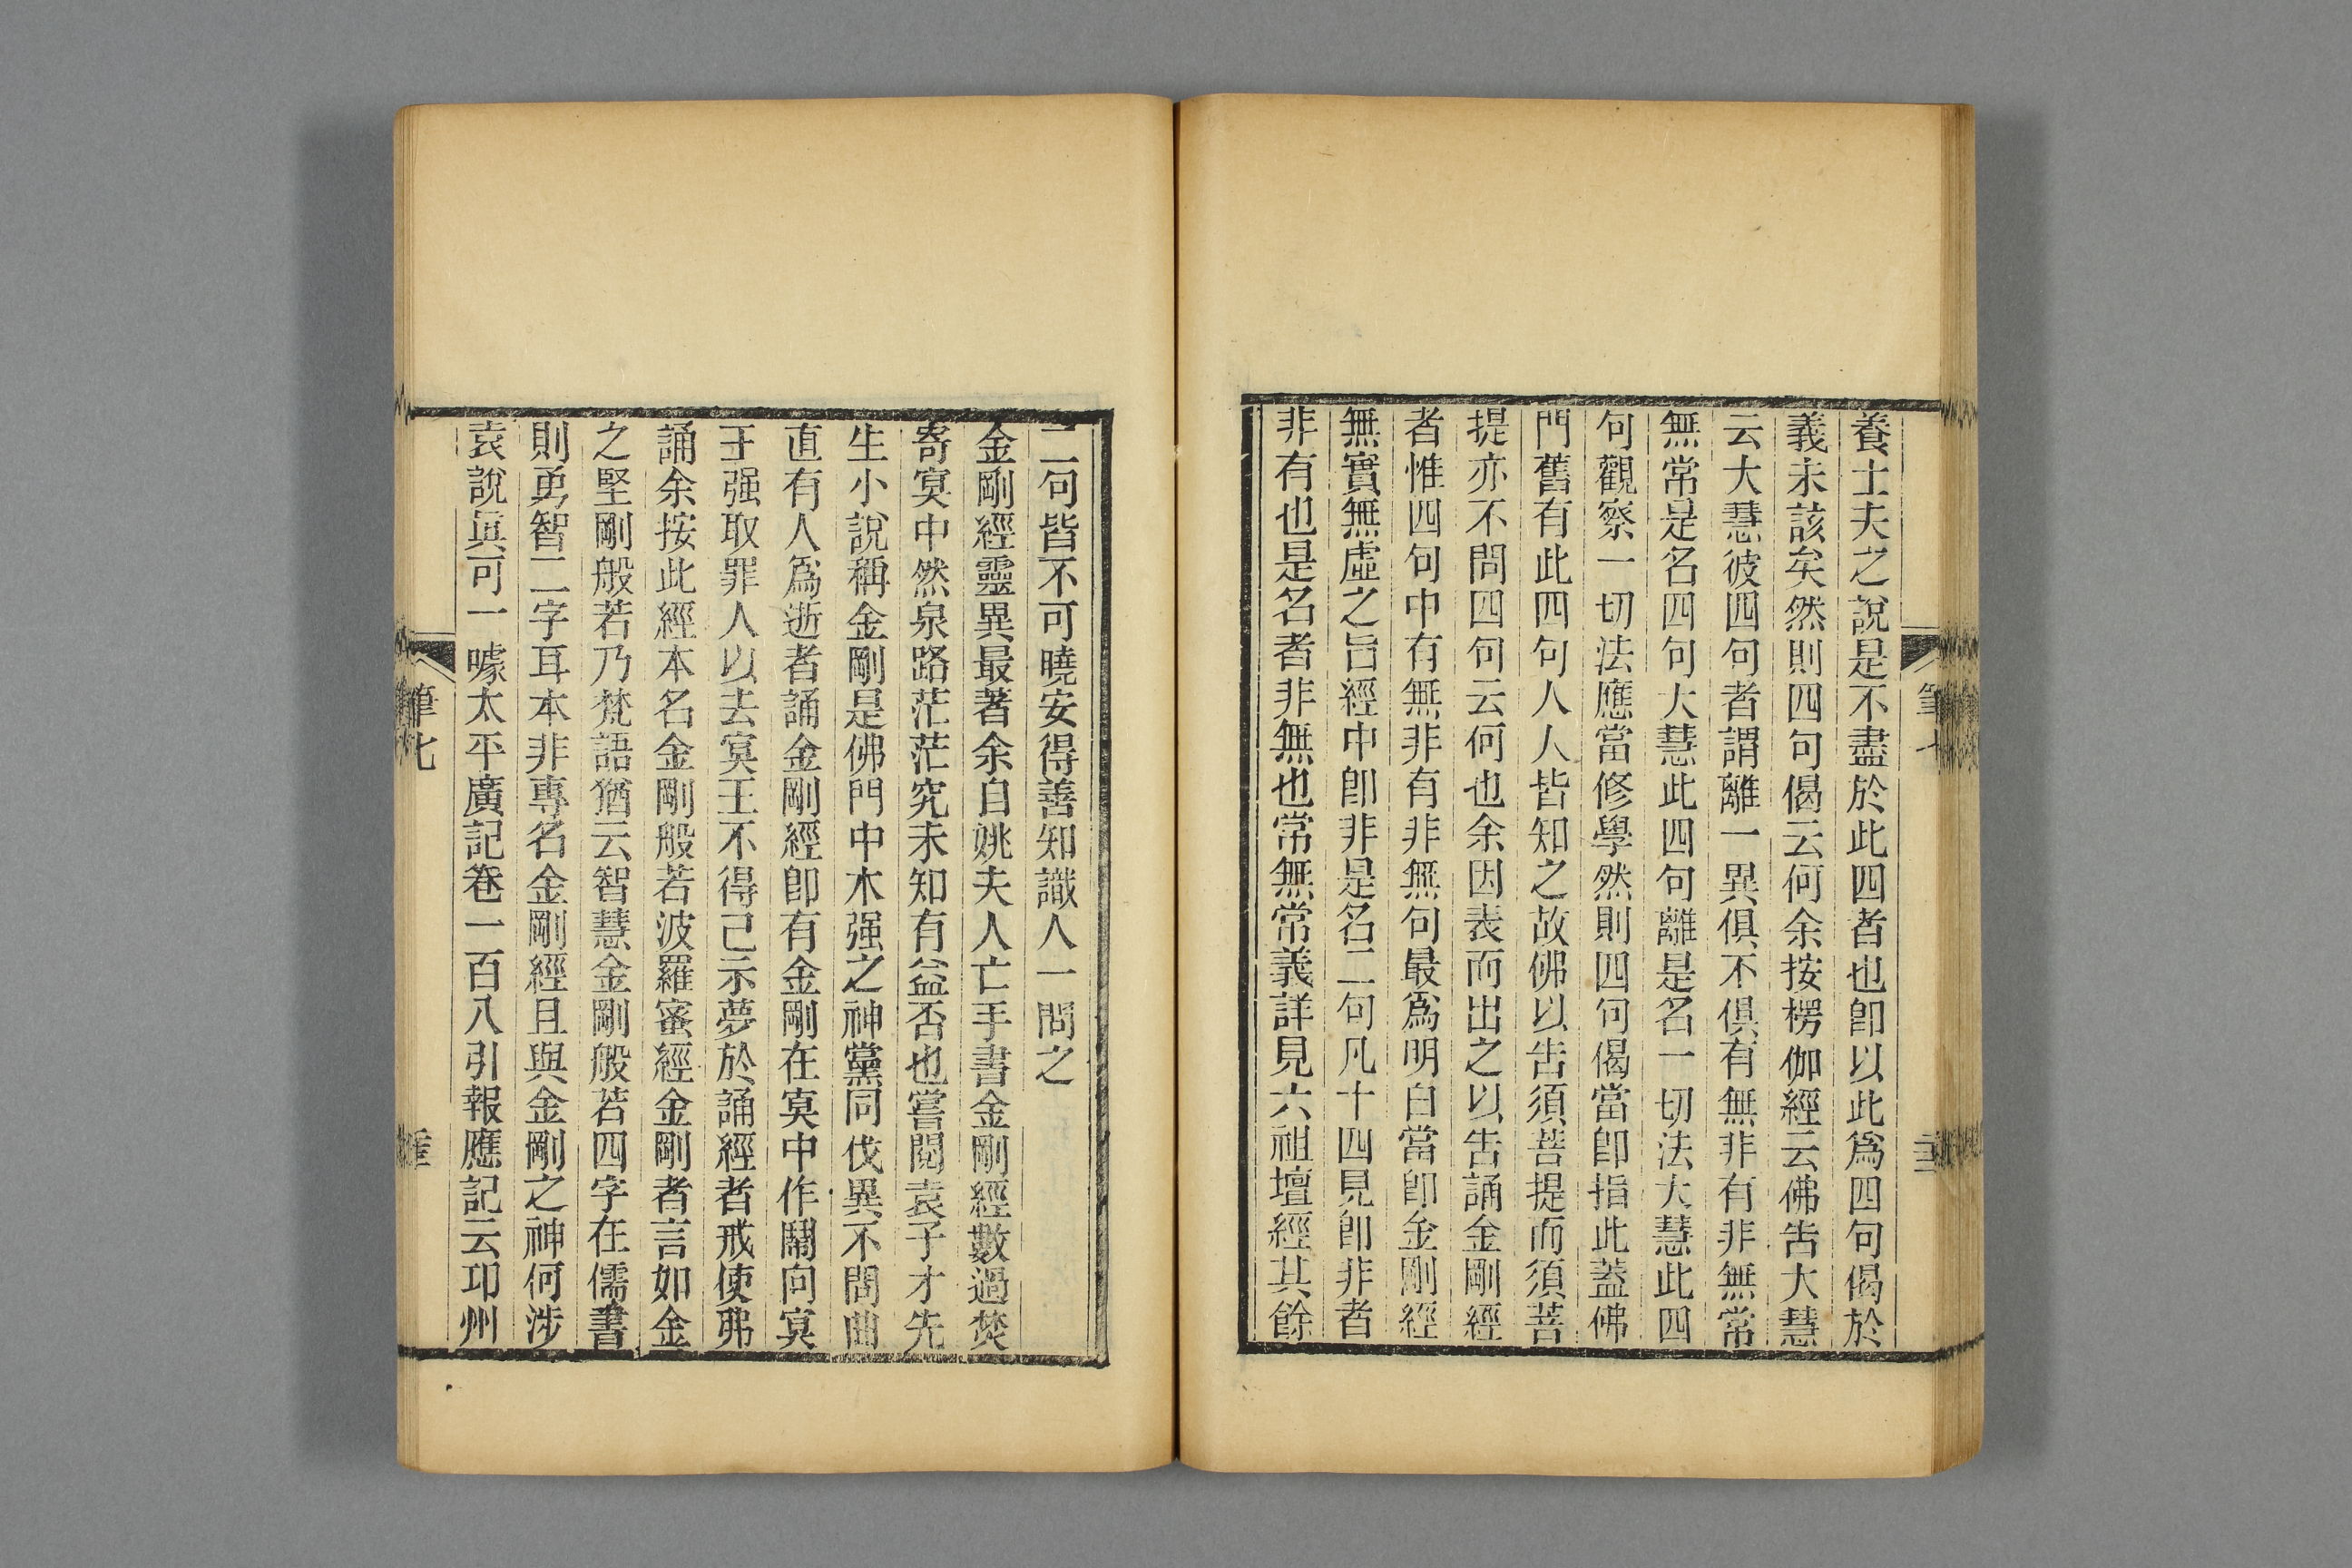 養士夫之說是不盡於此四者也卽以此爲四句偈於
義未該矣然則四句偈云何余按楞伽經云佛吿大慧
云大慧彼四句者謂離一異俱不俱有無非有非無常
無常是名四句大慧此四句離是名一切法大慧此四
句觀察一切法應當修學然則四句偈當卽指此蓋佛
門舊有此四句人人皆知之故佛以吿須菩提而須菩
提亦不問四句云何也余因表而出之以吿誦金剛經
者惟四句中有無非有非無句最爲明白當卽金剛經
無實無虛之旨經中卽非是名二句凡十四見卽非者
非有也是名者非無也常無常義詳見六祖壇經其餘
二句皆不可曉安得善知識人一問之
金剛經靈異最著余自姚夫人亡手書金剛經數過焚
寄冥中然泉路茫茫究未知有益否也嘗閱袁子才先
生小說稱金剛是佛門中木强之神黨同伐異不問曲
直有人爲逝者誦金剛經卽有金剛在冥中作鬧向冥
王强取罪人以去冥王不得已示夢於誦經者戒使弗
誦余按此經本名金剛般若波羅蜜經金剛者言如金
之堅剛般若乃梵語猶云智慧金剛般若四字在儒書
則勇智二字耳本非專名金剛經且與金剛之神何涉
袁說眞可一噱太平廣記卷一百八引報應記云卭州
筆七